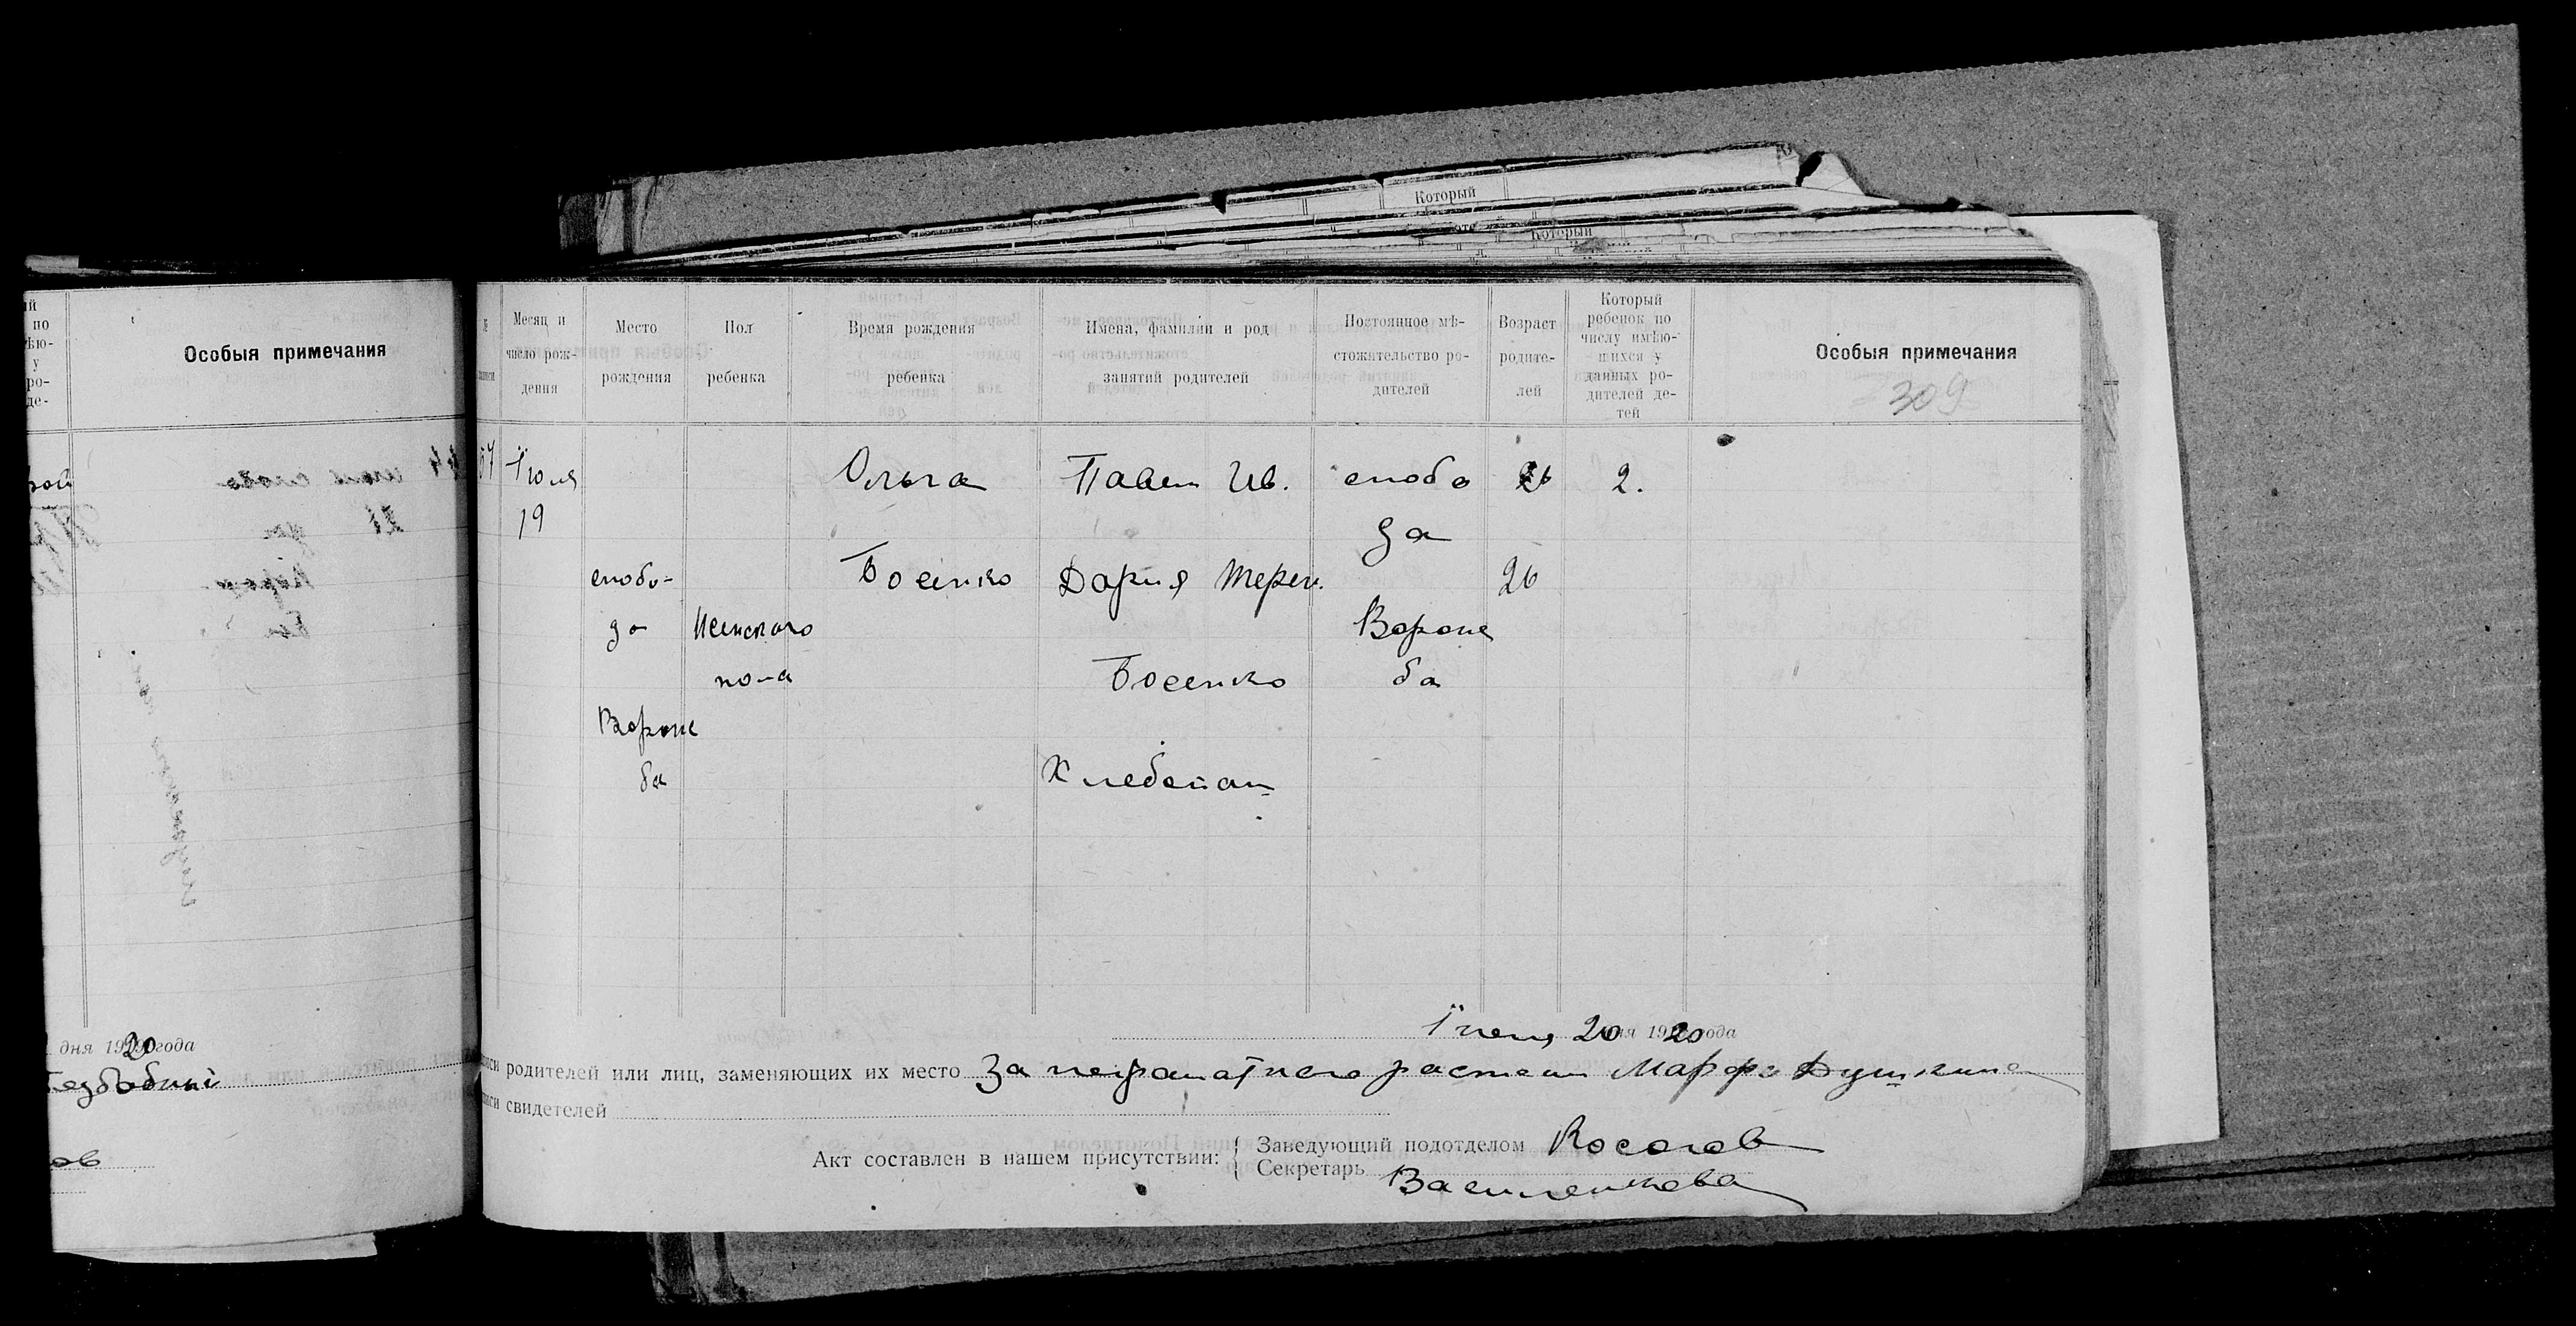 Который
Который
й
по
ѣю-
у
ро-
де-
Особыя примечания
дня 1920 года
ов
№
Месяц и
число рож-
дения
Место
рождения
Пол
ребенка
Время рождения
ребенка
Имена, фамилии и род
занятий родителей
Постоянное мѣ-
стожительство ро-
дителей
Возраст
родите-
лей
Который
ребенок по
числу имѣю-
щихся у
данных ро-
дителей де-
тей
Особыя примечания
309
57
Iюля
19
слобо-
да
Вороне
ба
Женского
пола
Ольга
Босенко
Павел Ив.
Дария Терен.
Босенко
Хлебопаш
слобо
да
Вороне
ба
26
26
2.
Iюля 20 дня 1920 года
родителей или лиц, заменяющих их место За неграматного Марфа
свидетелей
Акт составлен в нашем присутствии:
Заведующий подотделом Косогов
Секретарь Василенкова